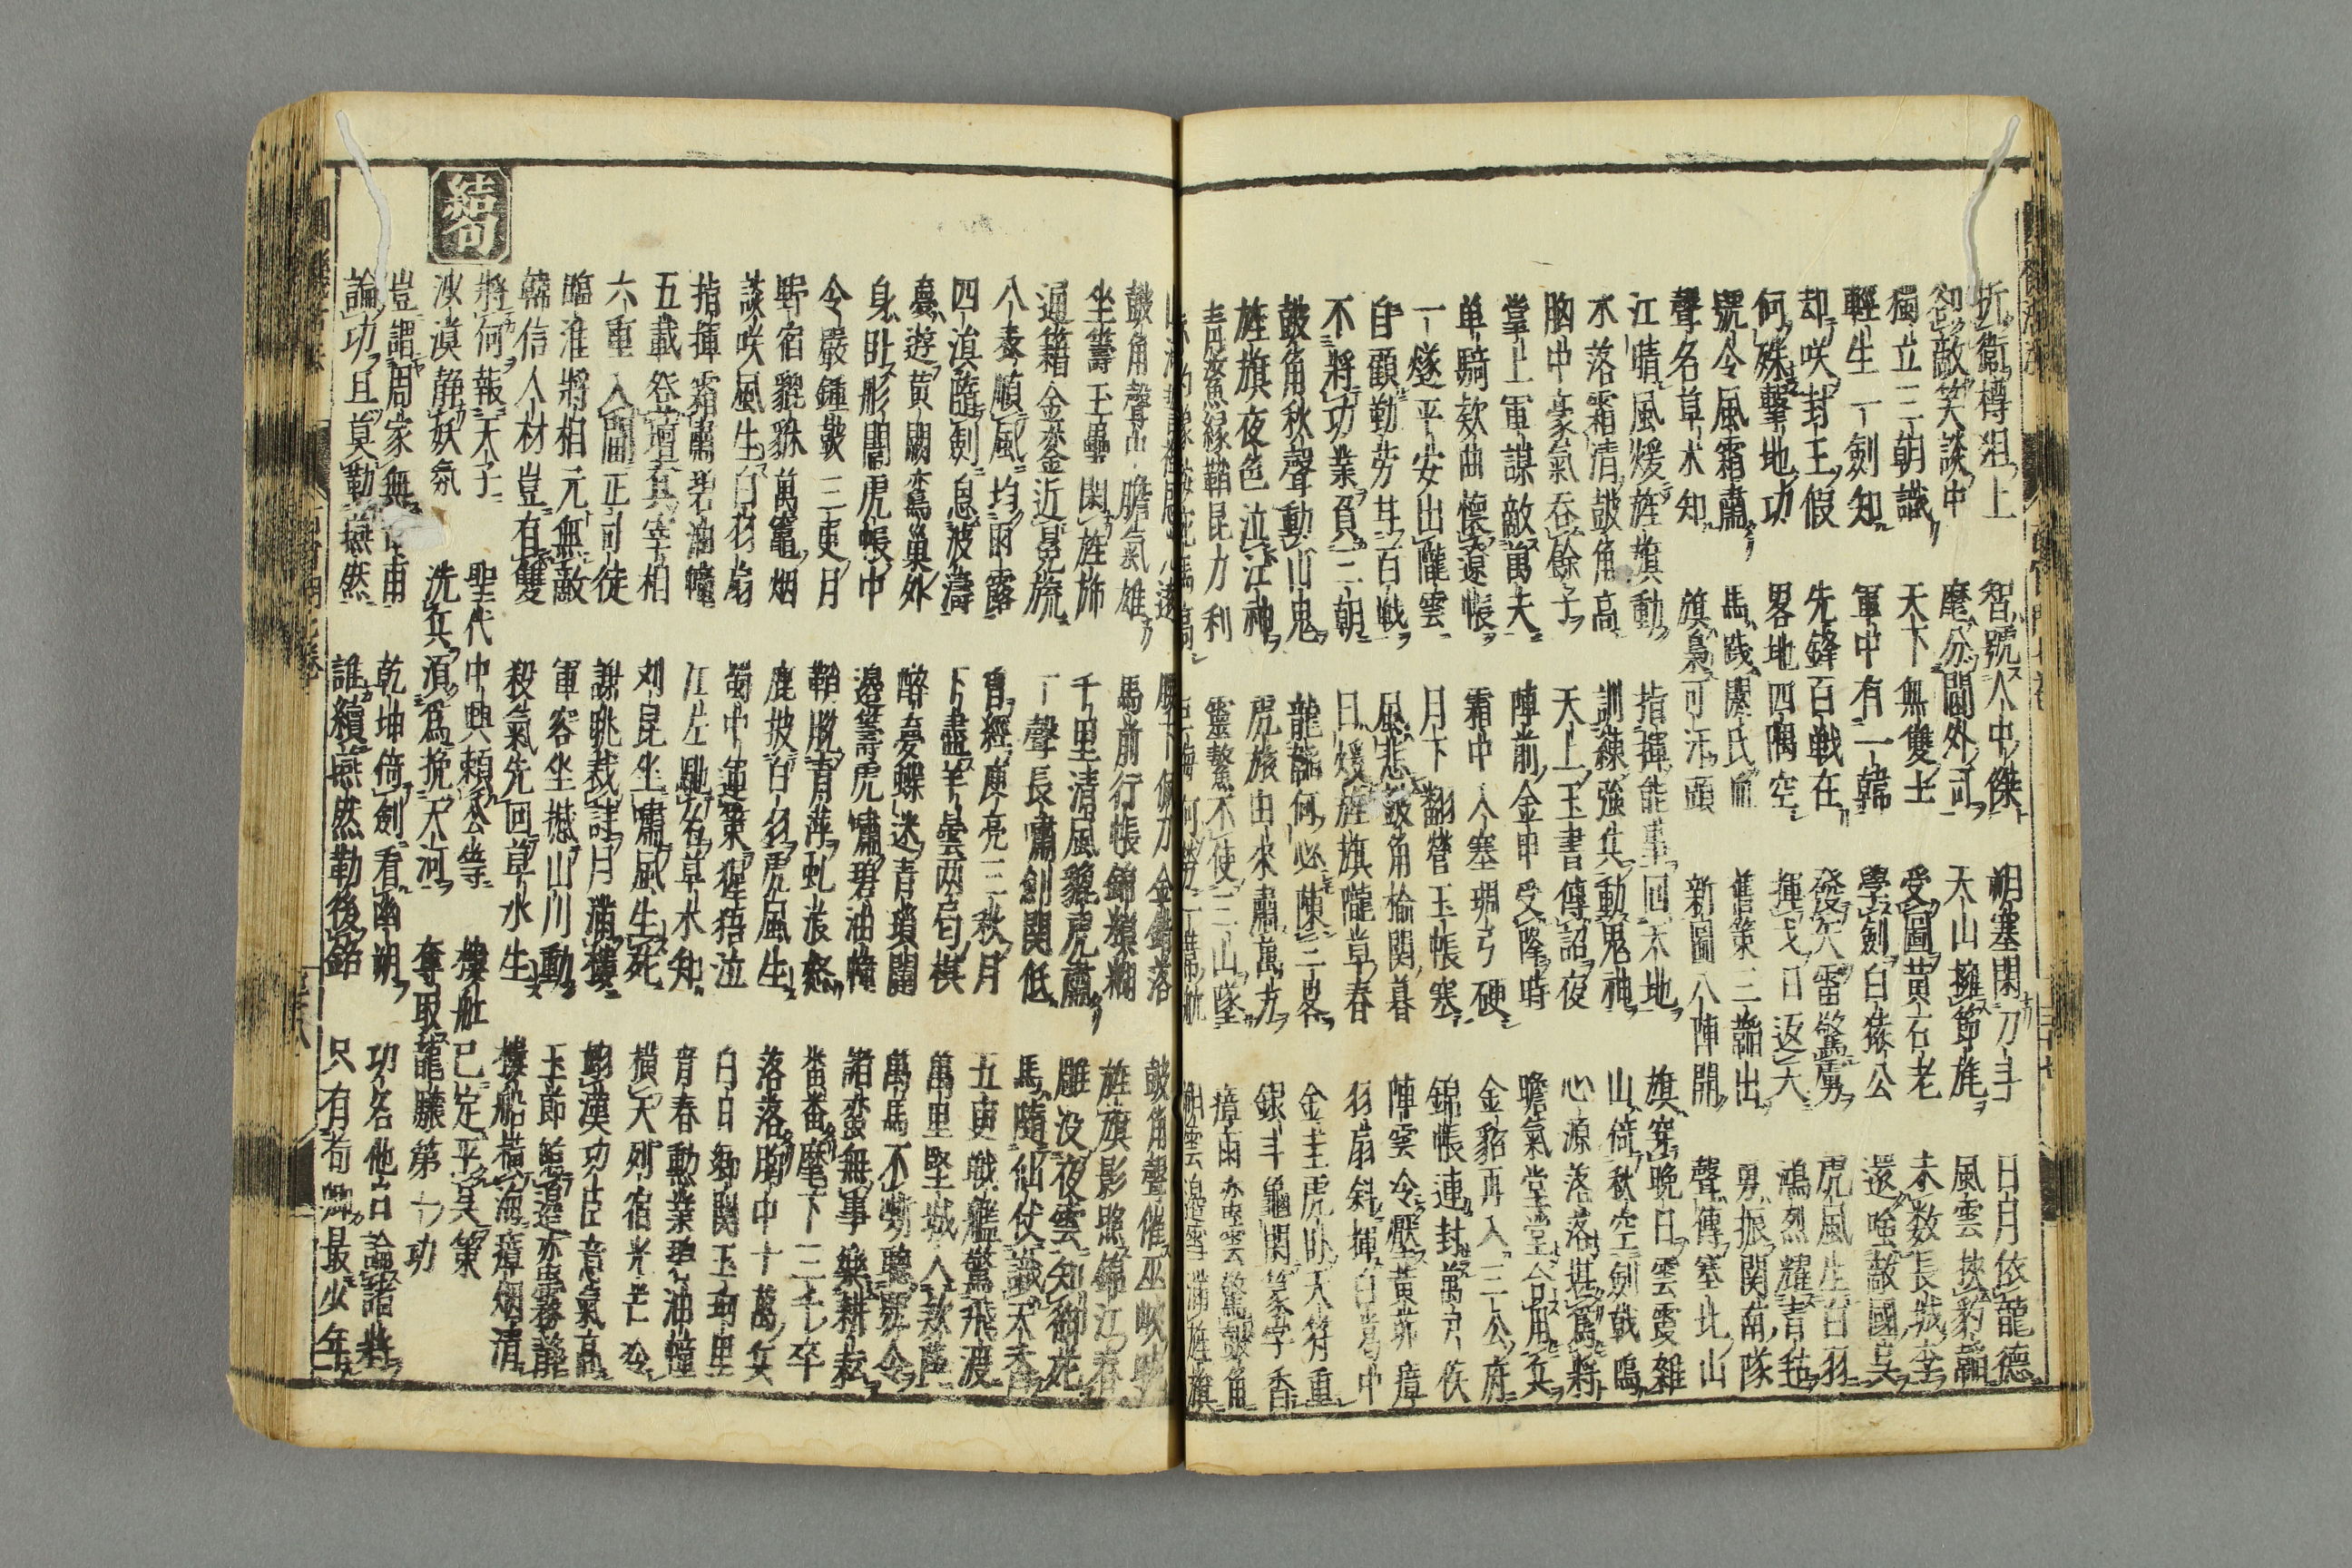 折衝樽俎上 智號人中傑 朔塞閑刀斗 日月依龍德
卻敵笑談中 麾分閫外司 天山擁節旄 風雲挾豹韜
獨立三朝識 天下無雙士 受圖黃石老 未数長城李
輕生一劍知 軍中有一韓 學劍白猿公 還嗤敵國吳
却咲封王假 先鋒百戦在 發矢雷驚虜 虎風生白羽
何殊擊地功 畧地四隅空 揮戈日返天 鴻烈耀青氊
號令風霜肅 馬踐閼氏血 舊策三韜出 勇振関南隊
聲名草木知 旗梟可汗頭 新圖八陣開 聲傳塞北山
江晴風煖旌旗動 指揮能事回天地 旗穿晚日雲霞雜
水落霜清皷角高 訓練強兵動鬼神 山倚秋空劍戟鳴
胸中豪氣吞餘子 天上玉書傳詔夜 心源落落堪爲將
掌上軍謀敵萬夫 陣前金甲受降時 瞻氣堂堂合用兵
单騎欵曲懷遠帳 霜中入塞琱弓硬 金貂再入三公府
一燧平安出隴雲 月下翻營玉帳寒 錦帳連封萬戸侯
自顧勤劳甘百戦 風悲皷角榆関暮 陣雲冷壓黃茆瘴
不將功業負三朝 日煖旌旗隴草春 羽扇斜揮白葛中
皷角秋聲動山鬼 龍韜何必陳三畧 金圭虎卧天符重
旌旗夜色泣江神 虎旅由來肅萬方 銀斗龜閑篆字香
青鯊綠鞘昆刀利 靈鰲不使三山墜 瘴雨蛮雲驚皷角
朔雲邊雪滿旌旗
腰下佩刀金錯落 皷角聲催巫峽曉
皷角聲高膽氣雄 馬前行帳錦模糊 旌旗影照錦江春
坐籌玉壘閑旌斾 千里清風貔虎肅 雕没夜雲知御苑
通籍金鑾近冕旒 一聲長嘯劍関低 馬隨仙仗識天香
八表順風均雨露 胷經庾亮三秋月 五更戦艦驚飛渡
四溟臨劍息波濤 下盡羊曇两局棋 萬里堅城入欵降
憂遊黃閫鴬巢外 醉夢蝶迷青瑣闥 萬馬不嘶聽號令
身卧彤闈虎帳中 邊籌虎嘯碧油幢 諸蛮無事樂耕耘
令嚴鍾皷三更月 鞘脫青萍虬浪怒 番番麾下三千卒
野宿貔貅萬竈烟 鹿披白羽虎風生 落落胸中十萬兵
談咲風生白羽扇 蜀中運策猩猩泣 白日鄉関玉珂里
指揮霜肅碧油幢 江左馳名草木知 青春勳業碧油幢
五載登壇真宰相 刘昆坐嘯風生 橫天列宿光芒冷
六重入閫正司徒 謝眺裁詩月滿樓 漢功臣意氣高
臨淮將相元無敵 軍容坐撼山川動 玉節邊霧靜
韓信人材豈有雙 殺氣先回草木生 樓船橫海瘴烟清
結句
將何報天子 聖代中興賴公等 樓船已定平吴策
沙漠静妖氛 洗兵須爲挽天河 奪取龍驤第一功
豈謂周家無甫 乾坤倚劍看幽朔 功名他日論諸將
論功且莫勒燕然 誰續燕然勒後銘 只有荀卿最少年